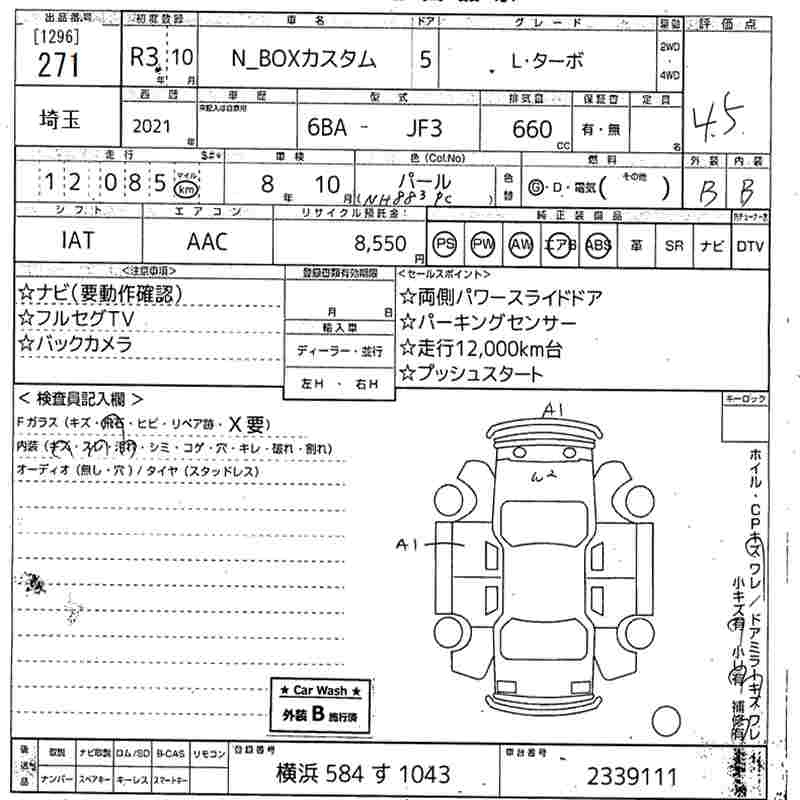 出品番号 初度登録 車名 ドア グレード 駆動 評価点
[1296]
271 R3年 10月 N_BOXカスタム 5 L・ターボ 2WD・4WD
4.5
西暦 車歴 型式 排気量 保証書 定員
未記入は自家用
埼玉 2021年 6BA - JF3 660cc 有・無 名
走行 車検 色(Col.No) 燃料 外装 内装
12085 マイル km 8年 10月 パール 色替 G・D・電気( その他 ) B B
(NH883PC)
シフト エアコン リサイクル預託金 純正装備品
IAT AAC 8,550円 PS PW AW エアB ABS 革 SR ナビ DTV
<注意事項> 登録書類有効期限 <セールスポイント>
☆ナビ(要動作確認) ☆両側パワースライドドア
☆フルセグTV 月 日 ☆パーキングセンサー
☆バックカメラ 輸入車 ☆走行12,000km台
ディーラー・並行 ☆プッシュスタート
左H・右H
<検査員記入欄> キーロック
Fガラス(キズ・飛石・ヒビ・リペア跡・X要)
内装(キズ・スレ・汚れ・シミ・コゲ・穴・キレ・破れ・割れ)
オーディオ(無し・穴)/タイヤ(スタッドレス)
A1
W2
A1
ホイル・CPキズワレ/ドアミラーキズワレ
小キズ有 小凹有 補修有
★ Car Wash ★
外装B施行済
後送品 取説 ナビ取説 ロム/SD B-CAS リモコン 登録番号 車台番号
ナンバー スペアキー キーレス スマートキー 横浜 584 す 1043 2339111